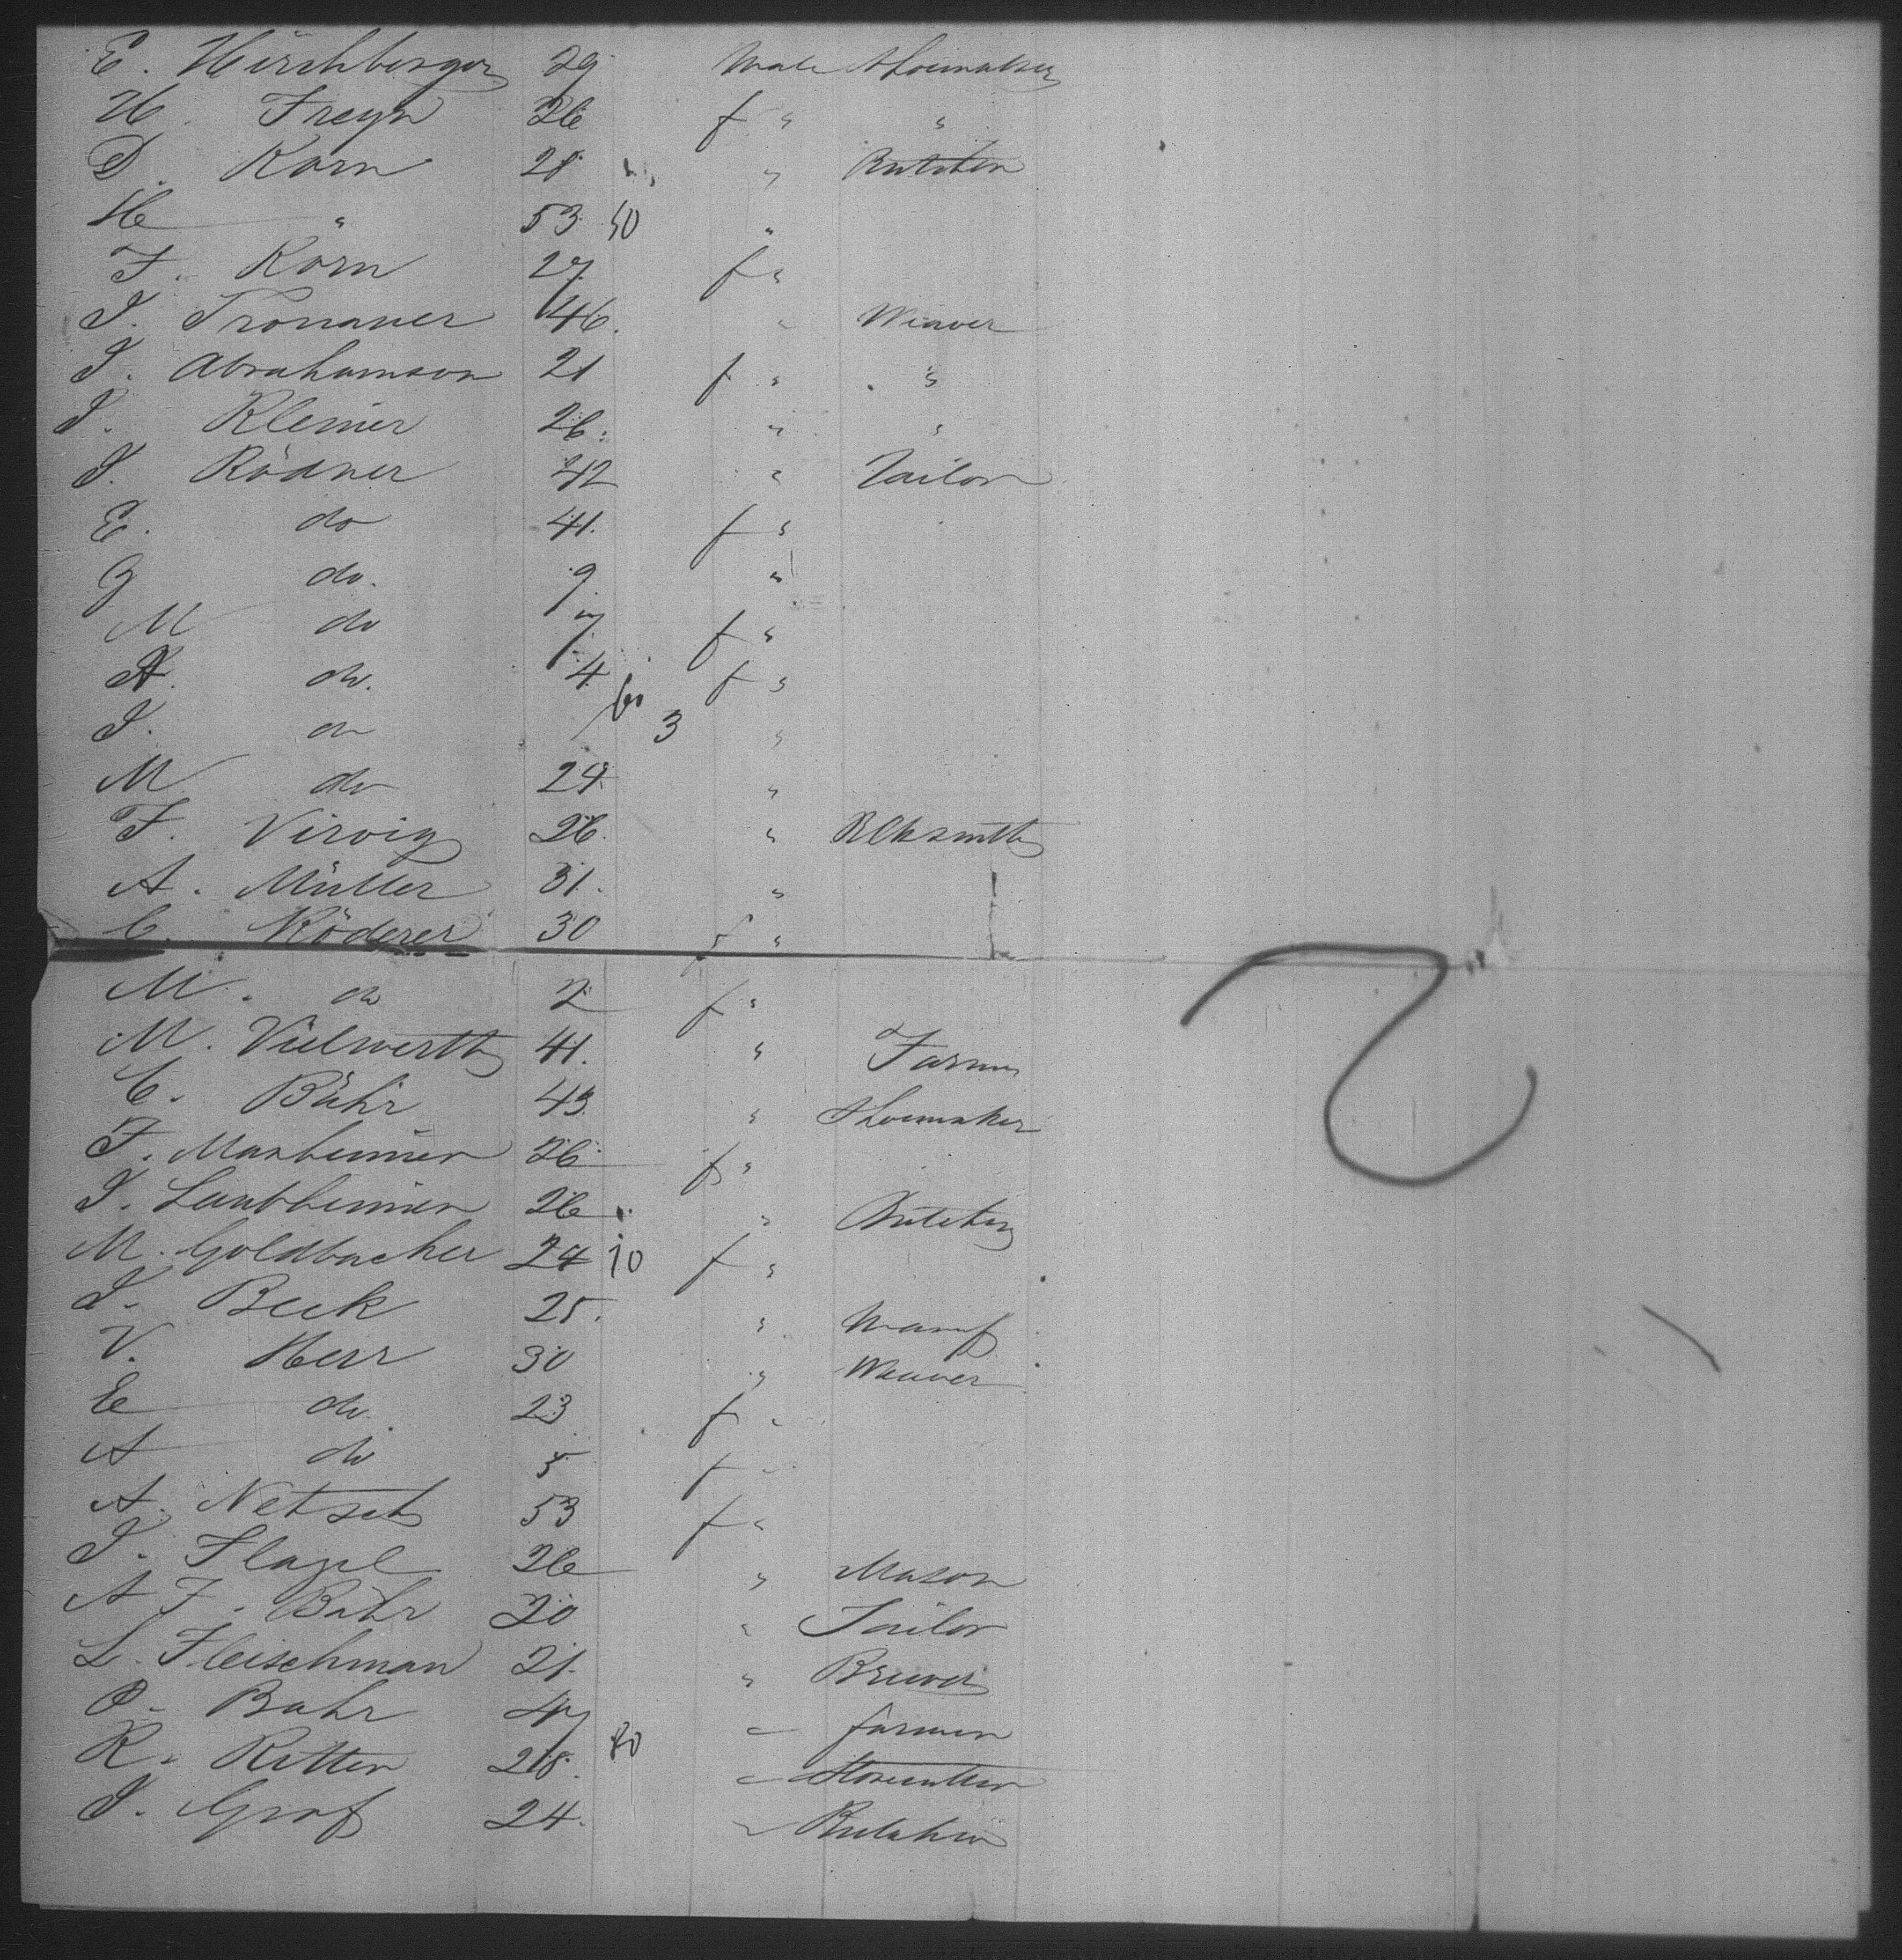 E. Hirschberger 29 Male Shoemaker
H. Freyn 26 f " "
D. Korn 28 " Butcher
H " 53 50 "
F. Korn 27 f "
J. Tronauer 46. " Weaver
J. Abrahamson 21 f " "
J. Kleiner 26. " "
J. Rödner 42 " Tailor
E. do 41. f "
G do. 9 "
M do 7 f "
A. do. 4. f "
J. do 60 3 "
M do 24 "
F. Virvig 26. " Blksmith
A. Müller 31. "
C. Röderer 30 f "
M. do 2 f "
M. Vielwerth 41. " Farmer
C. Bähr 43. " Shoemaker
F. Manheimer 26 f "
J. Laubheimer 26 " Butcher
M. Goldbacher 24 70 f "
J. Beck 25. " Manf
V. Herr 30 " Weaver
E do. 23 f "
A do 5 f "
A. Netsch 53 f "
J. Flagel 26 " Mason
A F. Bähr 20 " Tailor
L. Fleischman 21. " Brewer
P. Bahr 47 " farmer
R. Ritter 28. 80 "
J. Graf 24. " Butcher
2